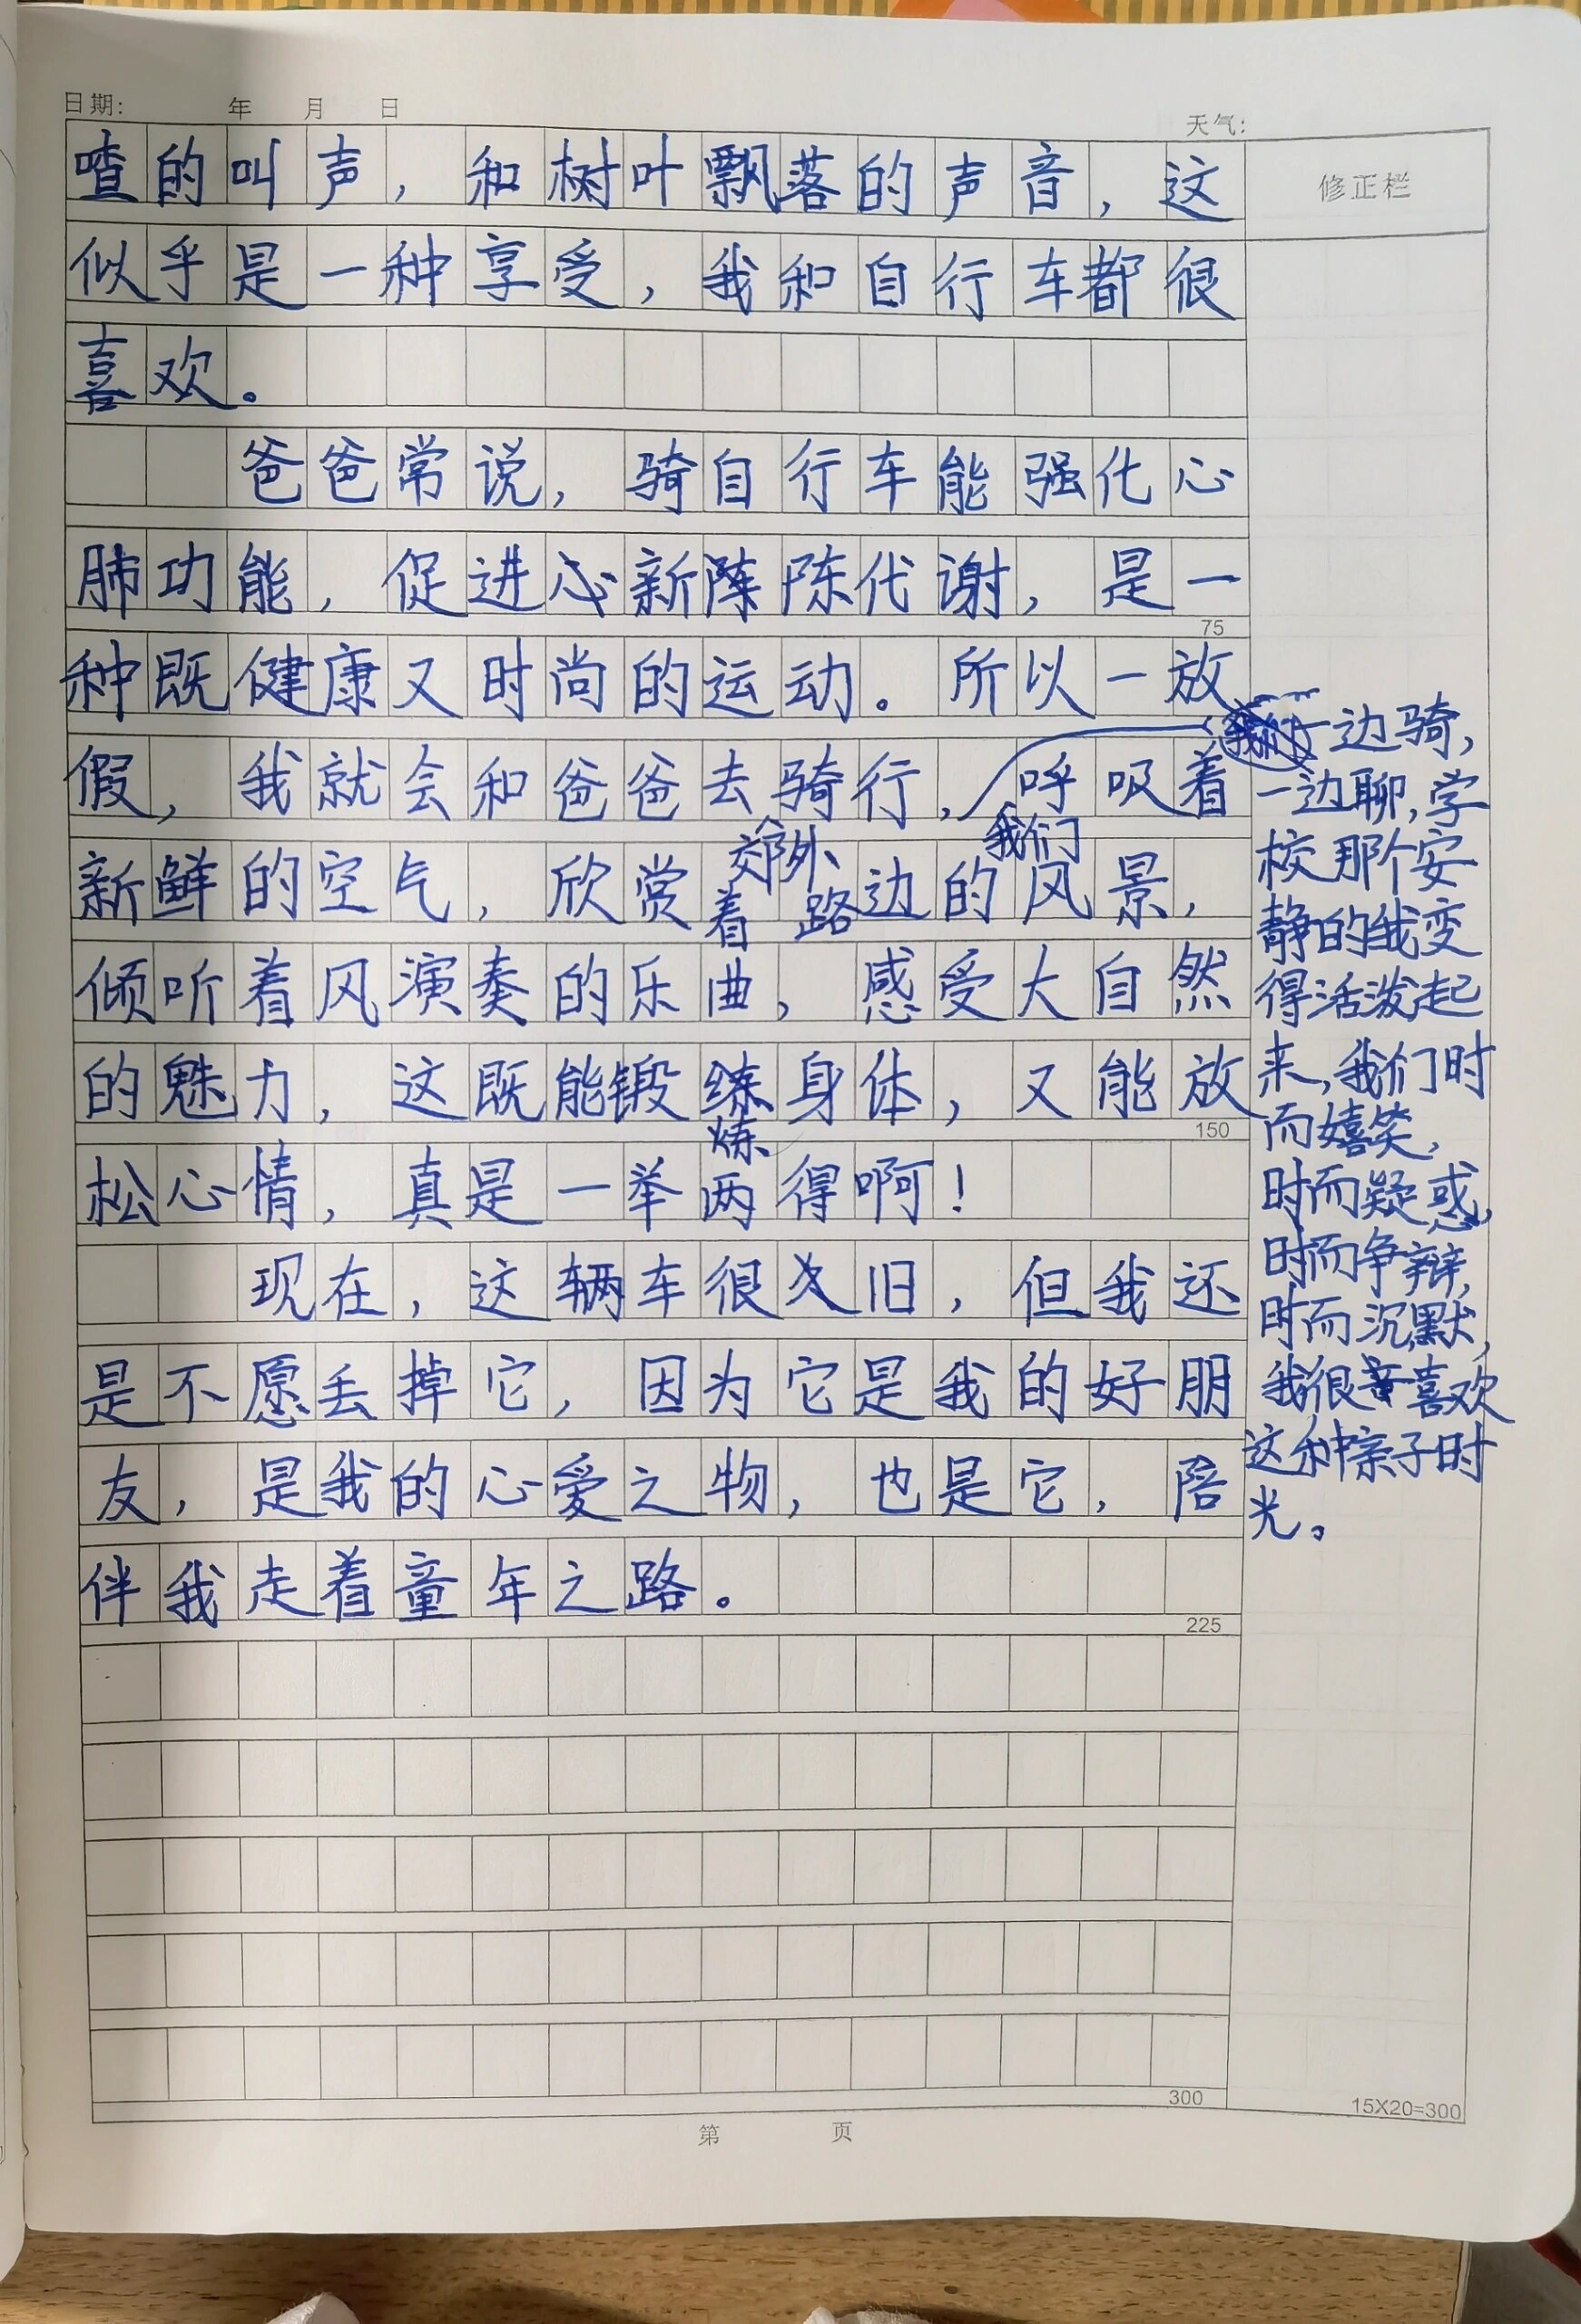 日期: 年 月 日 天气:
修正栏
喳的叫声，和树叶飘落的声音，这
似乎是一种享受，我和自行车都很
喜欢。
爸爸常说，骑自行车能强化心
肺功能，促进心新陈陈代谢，是一
75
种既健康又时尚的运动。所以一放
假，我就会和爸爸去骑行，呼吸着
郊外 我们
新鲜的空气，欣赏着路边的风景，
倾听着风演奏的乐曲，感受大自然
的魅力，这既能锻练身体，又能放
炼
150
松心情，真是一举两得啊！
现在，这辆车很久旧，但我还
是不愿丢掉它，因为它是我的好朋
友，是我的心爱之物，也是它，陪
伴我走着童年之路。
225
我们一边骑，
一边聊，学
校那个安
静的我变
得活泼起
来，我们时
而嬉笑，
时而疑惑，
时而争辩，
时而沉默，
我很喜欢
这种亲子时
光。
300
15X20=300
第 页